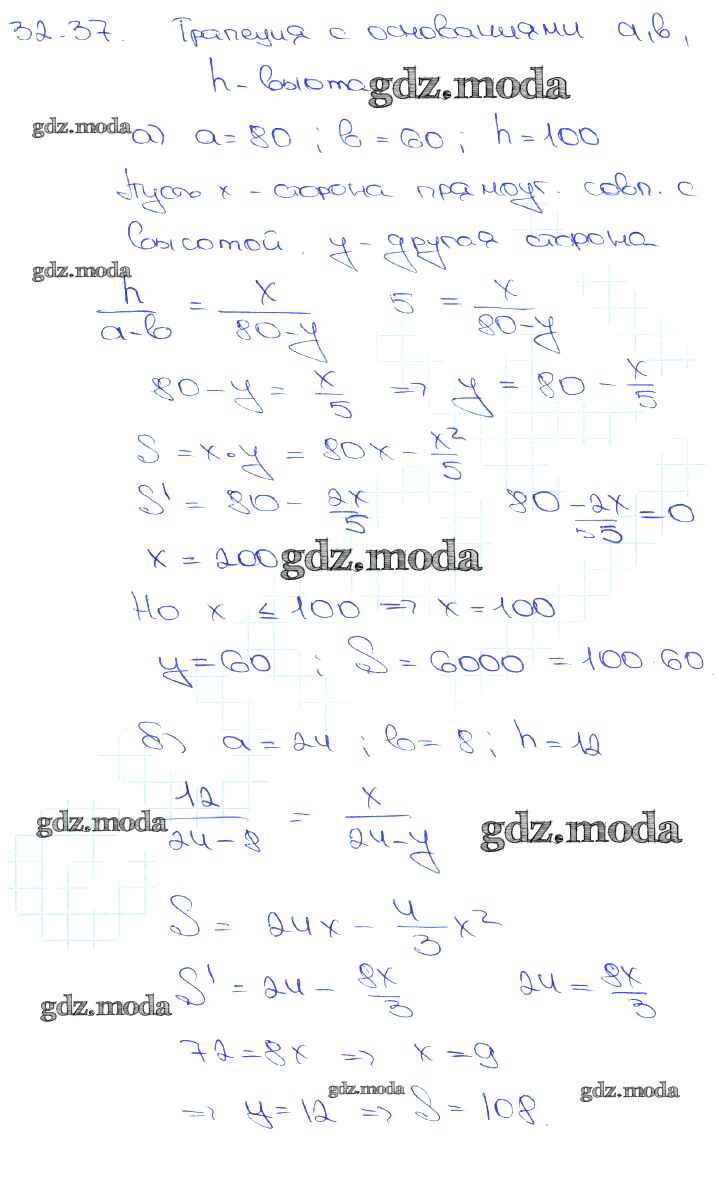 32.37. Трапеция с основаниями a, b,
h - высота gdz.moda
gdz.moda а) a = 80 ; b = 60 ; h = 100
Пусть x - сторона прямоуг. совп. с
высотой. y - другая сторона
gdz.moda
h/(a-b) = x/(80-y) 5 = x/(80-y)
80 - y = x/5 => y = 80 - x/5
S = x·y = 80x - x²/5
S' = 80 - 2x/5 80 - 2x/5 = 0
x = 200 gdz.moda
Но x ≤ 100 => x = 100
y = 60 ; S = 6000 = 100·60.
б) a = 24 ; b = 8 ; h = 12
gdz.moda 12/(24-8) = x/(24-y) gdz.moda
S = 24x - 4/3 x²
S' = 24 - 8x/3 24 = 8x/3
gdz.moda
72 = 8x => x = 9
gdz.moda gdz.moda
=> y = 12 => S = 108.